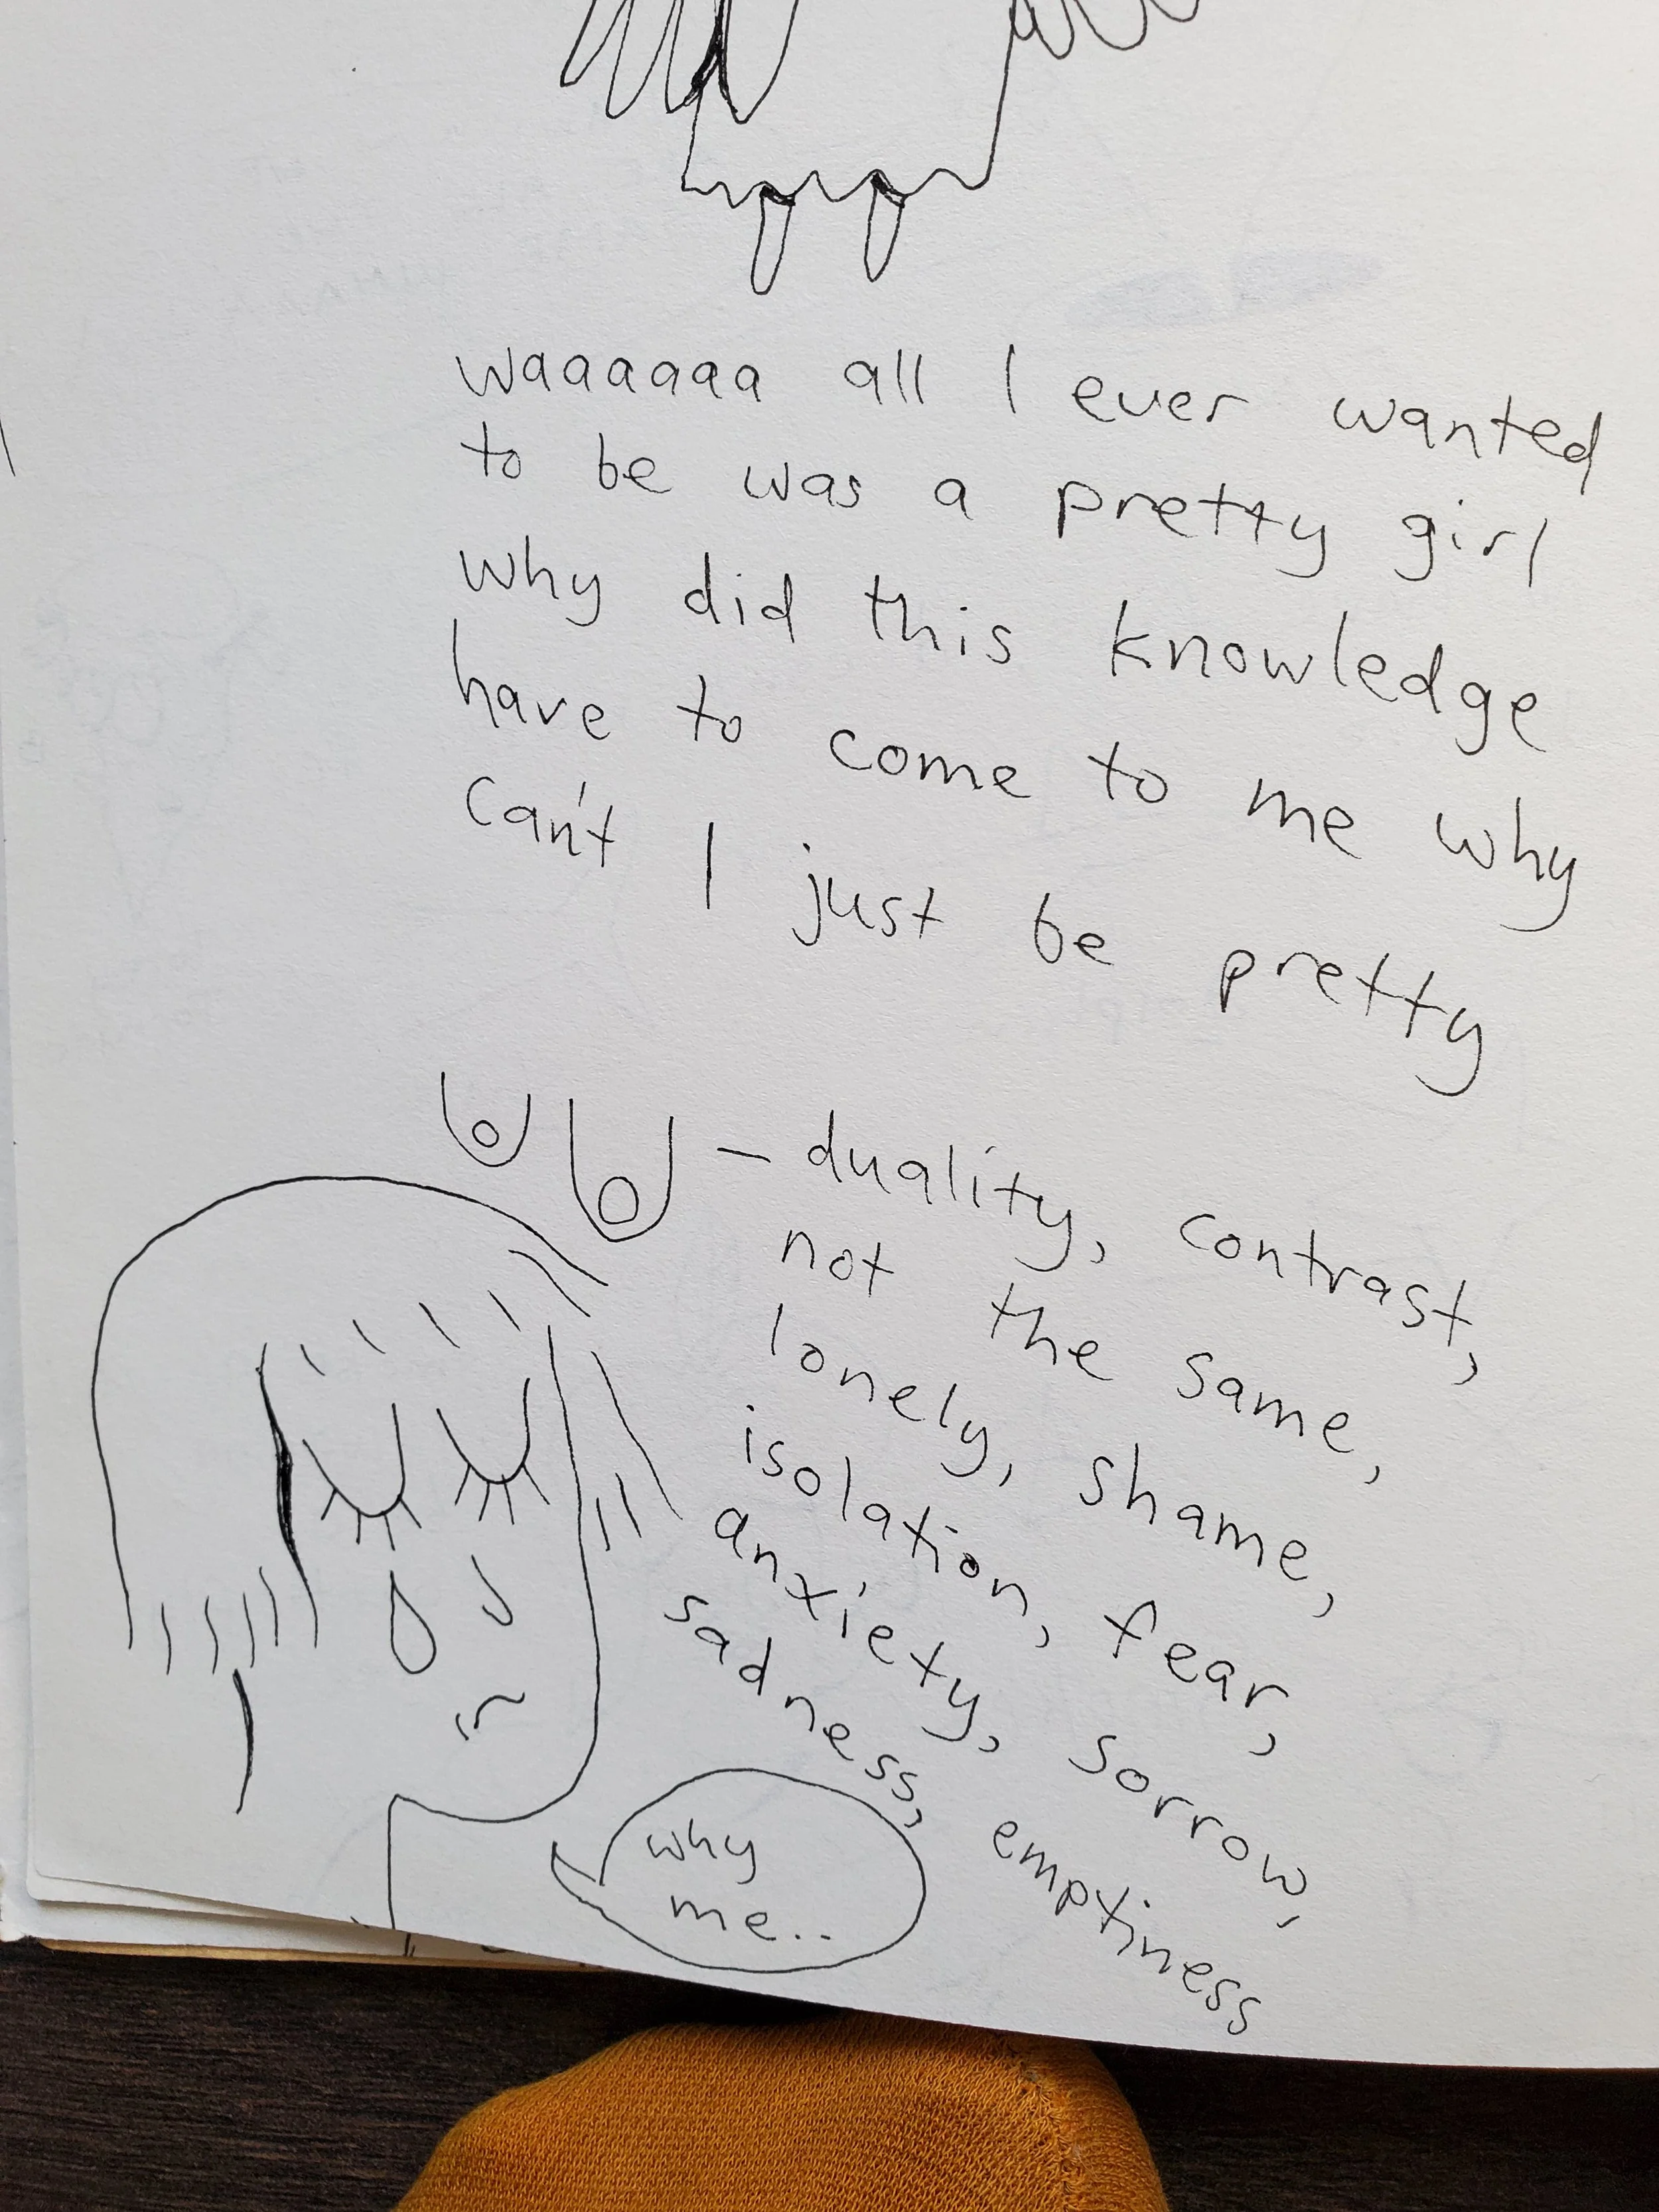 waaaaaa all I ever wanted
to be was a pretty girl
why did this knowledge
have to come to me why
can't I just be pretty
– duality, contrast,
not the same,
lonely, shame,
isolation, fear,
anxiety, sorrow,
sadness, emptiness
why
me..